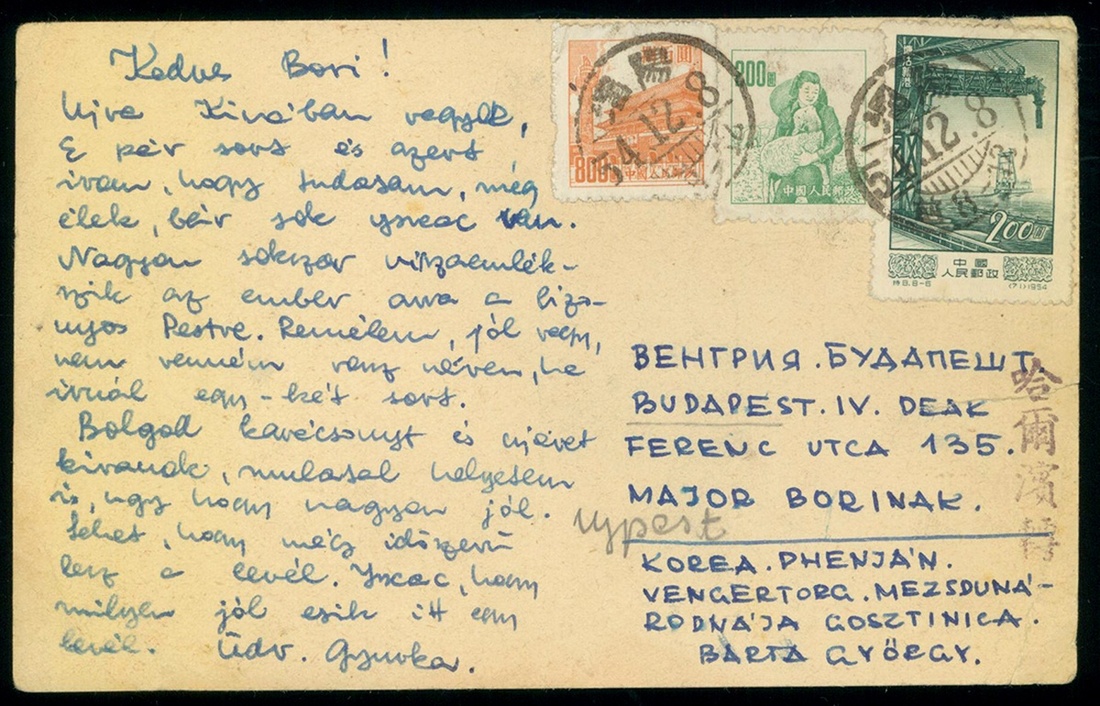 Kedves Bori!
Ujra Kinában vagyok,
E pár sort is azért
irom, hogy tudasam, még
élek, bár sok van.
Nagyon sokszor visszaemlék-
szik az ember arra a bizo-
nyos Pestre. Remélem, jól vagy,
nem venném rossz néven, ha
irnál egy-két sort.
Bolgod karácsonyt és ujévet
kivanok, mulasal helyesem
is, ugy hogy nagyon jól.
Lehet, hogy még időszerű
lesz a levél. hogy
milyen jól esik itt egy
levél. Üdv. Gyurka.
800
中國人民郵政
瀋陽
54.12.8
800圓
中國人民郵政
12.8
200圓
中國
人民郵政
特8.8-6
(71)1954
ВЕНГРИЯ. БУДАПЕШТ.
BUDAPEST. IV. DEAK
FERENC UTCA 135.
MAJOR BORINAK.
ujpest
KOREA. PHENJÁN.
VENGERTORG. MEZSDUNÁ-
RODNÁJA GOSZTINICA.
BARTA GYÖRGY.
哈爾濱